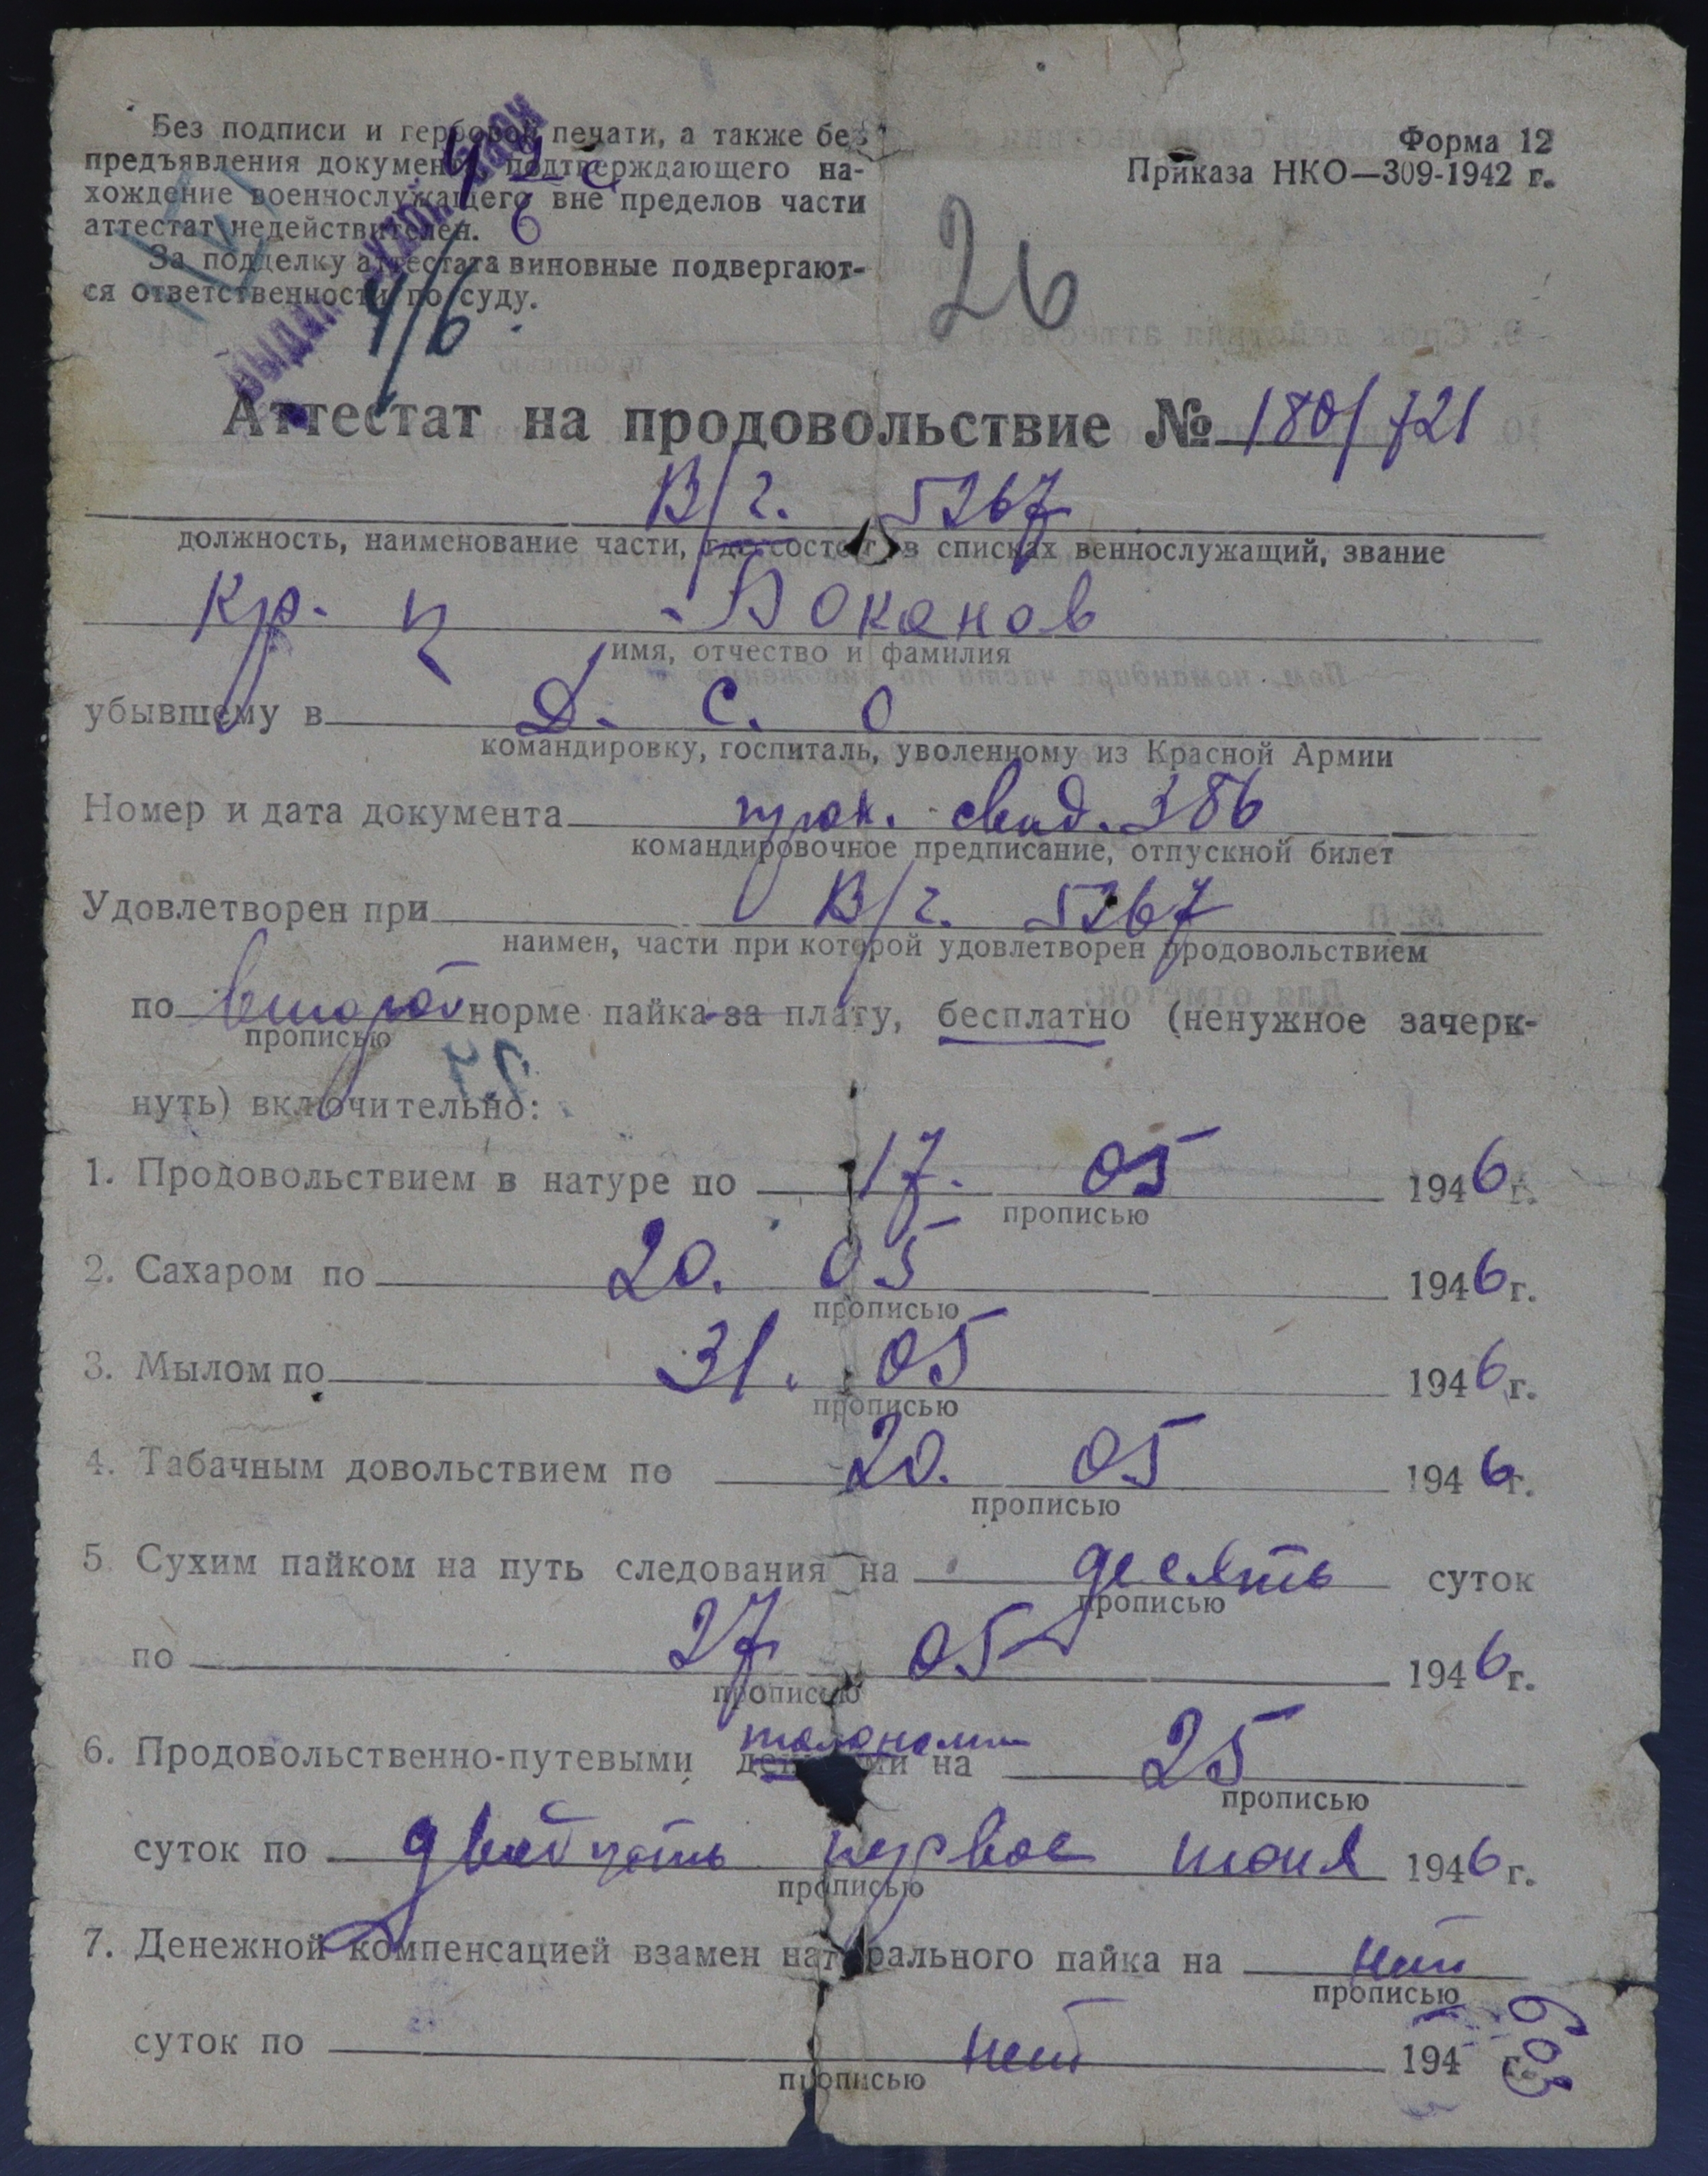 Без подписи и гербовой печати, а также без
предъявления документа, подтверждающего на-
хождение военнослужащего вне пределов части
аттестат недействителен.
За подделку аттестата виновные подвергают-
ся ответственности по суду.
4/6
Форма 12
Приказа НКО—309-1942 г.
26
Аттестат на продовольствие № 180/721
В/г. 5267
должность, наименование части, где состоит в списках веннослужащий, звание
Кр-ц Боканов
имя, отчество и фамилия
убывшему в Д. С. О
командировку, госпиталь, уволенному из Красной Армии
Номер и дата документа прох. свид. 386
командировочное предписание, отпускной билет
Удовлетворен при В/г. 5267
наимен, части при которой удовлетворен продовольствием
по второй норме пайка за плату, бесплатно (ненужное зачерк-
прописью
нуть) включительно:
1. Продовольствием в натуре по 17. 05 1946 г.
прописью
2. Сахаром по 20. 05 1946 г.
прописью
3. Мылом по 31. 05 1946 г.
прописью
4. Табачным довольствием по 20. 05 1946 г.
прописью
5. Сухим пайком на путь следования на десять суток
прописью
по 27 05 1946 г.
прописью
талонами
6. Продовольственно-путевыми деньгами на 25
прописью
суток по двадцать первое июня 1946 г.
прописью
7. Денежной компенсацией взамен натурального пайка на нет
прописью
суток по нет 194 г.
прописью
603